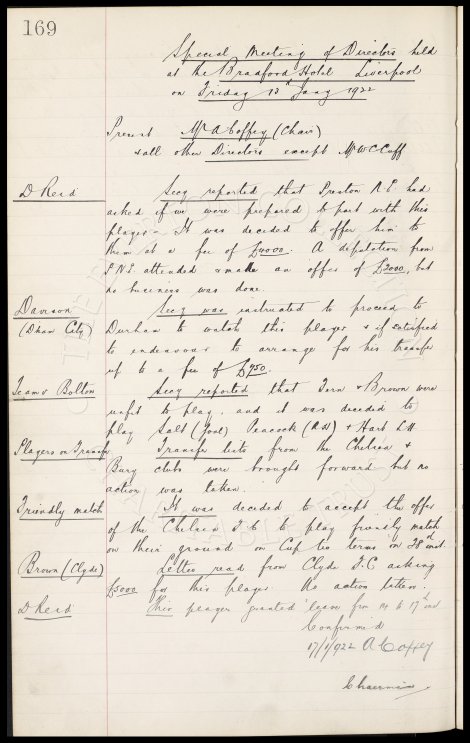 169
Special Meeting of Directors held
at the Bradford Hotel Liverpool
on Friday 13th Jany 1922
Present Mr A Coffey (Chair)
& all other Directors except Mr W C Cuff
D Reid
Secy reported that Preston N.E. had
asked if we were prepared to part with this
player. It was decided to offer him to
them at a fee of £4000. A deputation from
P.N.E. attended & made an offer of £3000, but
no business was done.
Davison
(Dham City)
Secy was instructed to proceed to
Durham to watch this player & if satisfied
to endeavour to arrange for his transfer
up to a fee of £750.
Team v Bolton
Secy reported that & Brown were
unfit to play, and it was decided to
play Salt (Goal) Peacock & Hart L H
Players on Transfer
Transfer lists from the Chelsea &
Bury clubs were brought forward but no
action was taken.
Friendly match
It was decided to accept the offer
of the Chelsea F.C. to play friendly match
on their ground on Cup tie terms on 28th inst.
Brown (Clyde)
Letter read from Clyde F.C asking
£5000 for this player. No action taken.
D Reid
This player granted leave from 14 to 17th inst
Confirmed
17/1/1922 A Coffey
Chairman